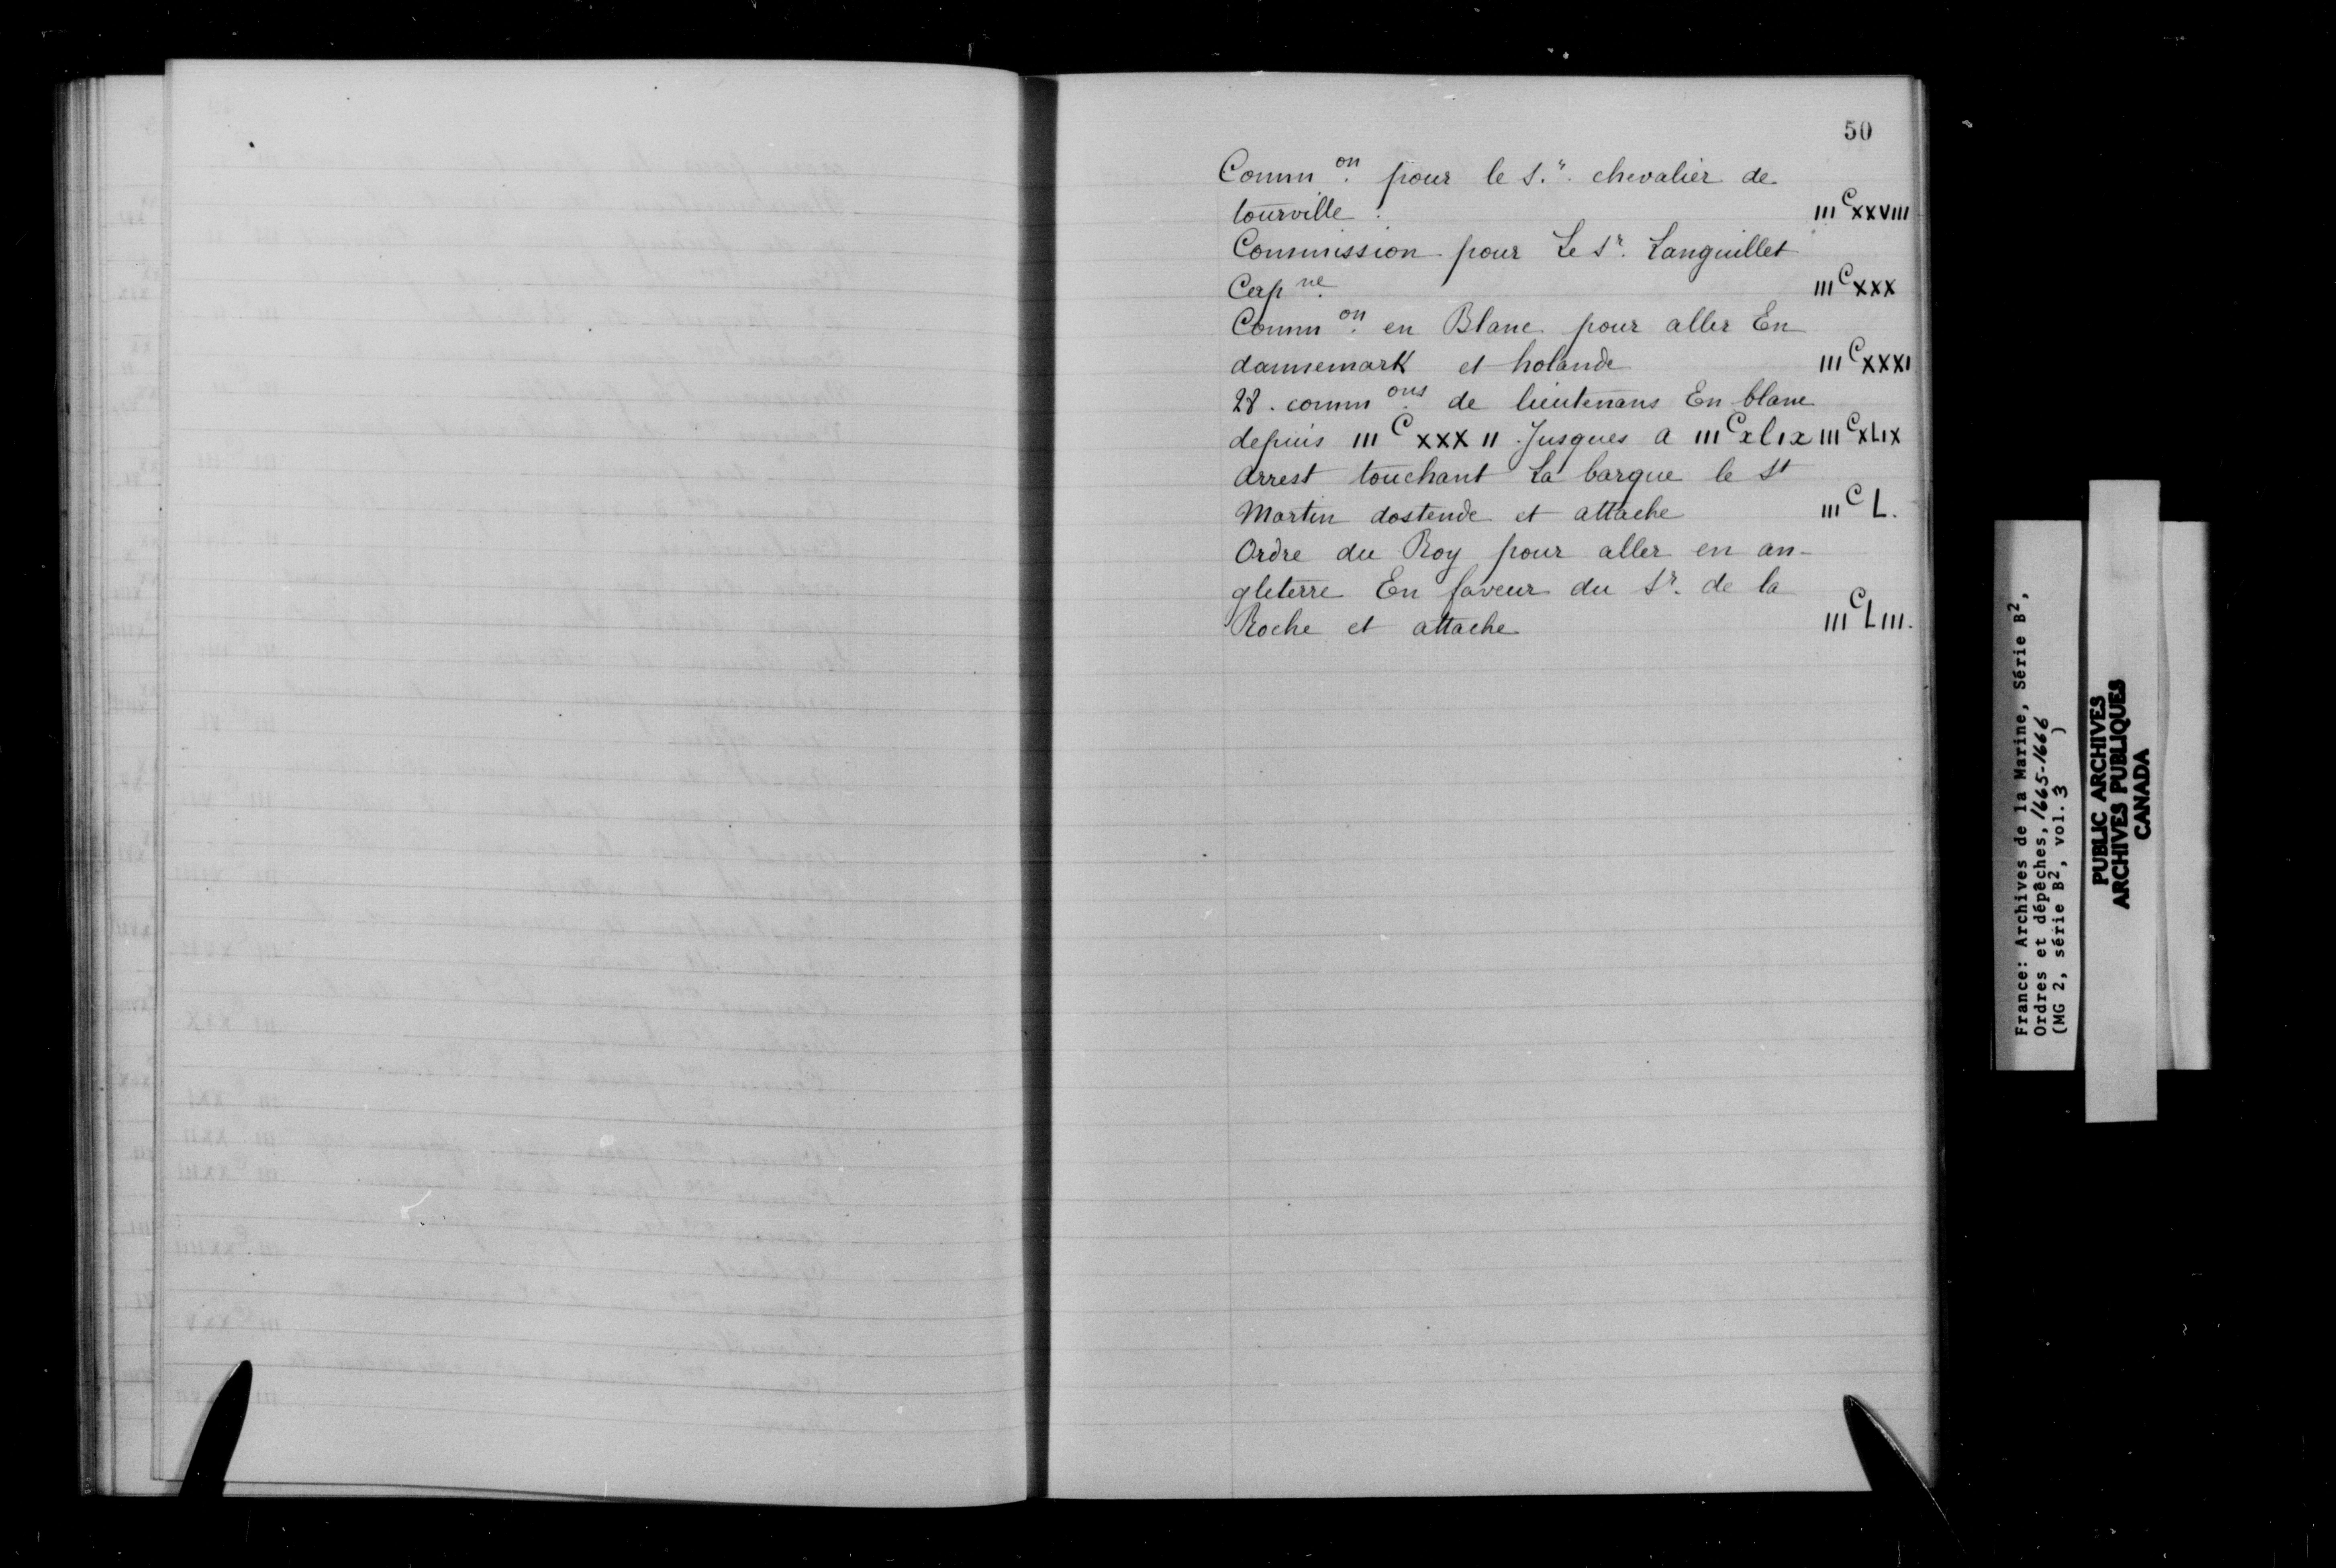 50
Comm.on pour le S.r chevalier de
tourville. IIICXXVIII
Commission pour Le Sr. Languillet
Cap.ne IIICXXX
Comm.on en Blanc pour aller En
dannemark et holande IIICXXXI
28. comm.ons de lieutenans En blanc
depuis IIICXXXII. Jusques a IIICxlix IIICXLIX
arrest touchant La barque le St
Martin dostende et attache IIIC L.
Ordre du Roy pour aller en an-
gleterre En faveur du Sr. de la
Roche et attache IIICLIII.
France: Archives de la Marine, Série B2,
Ordres et dépêches, 1665-1666
(MG 2, série B2, vol. 3 )
PUBLIC ARCHIVES
ARCHIVES PUBLIQUES
CANADA